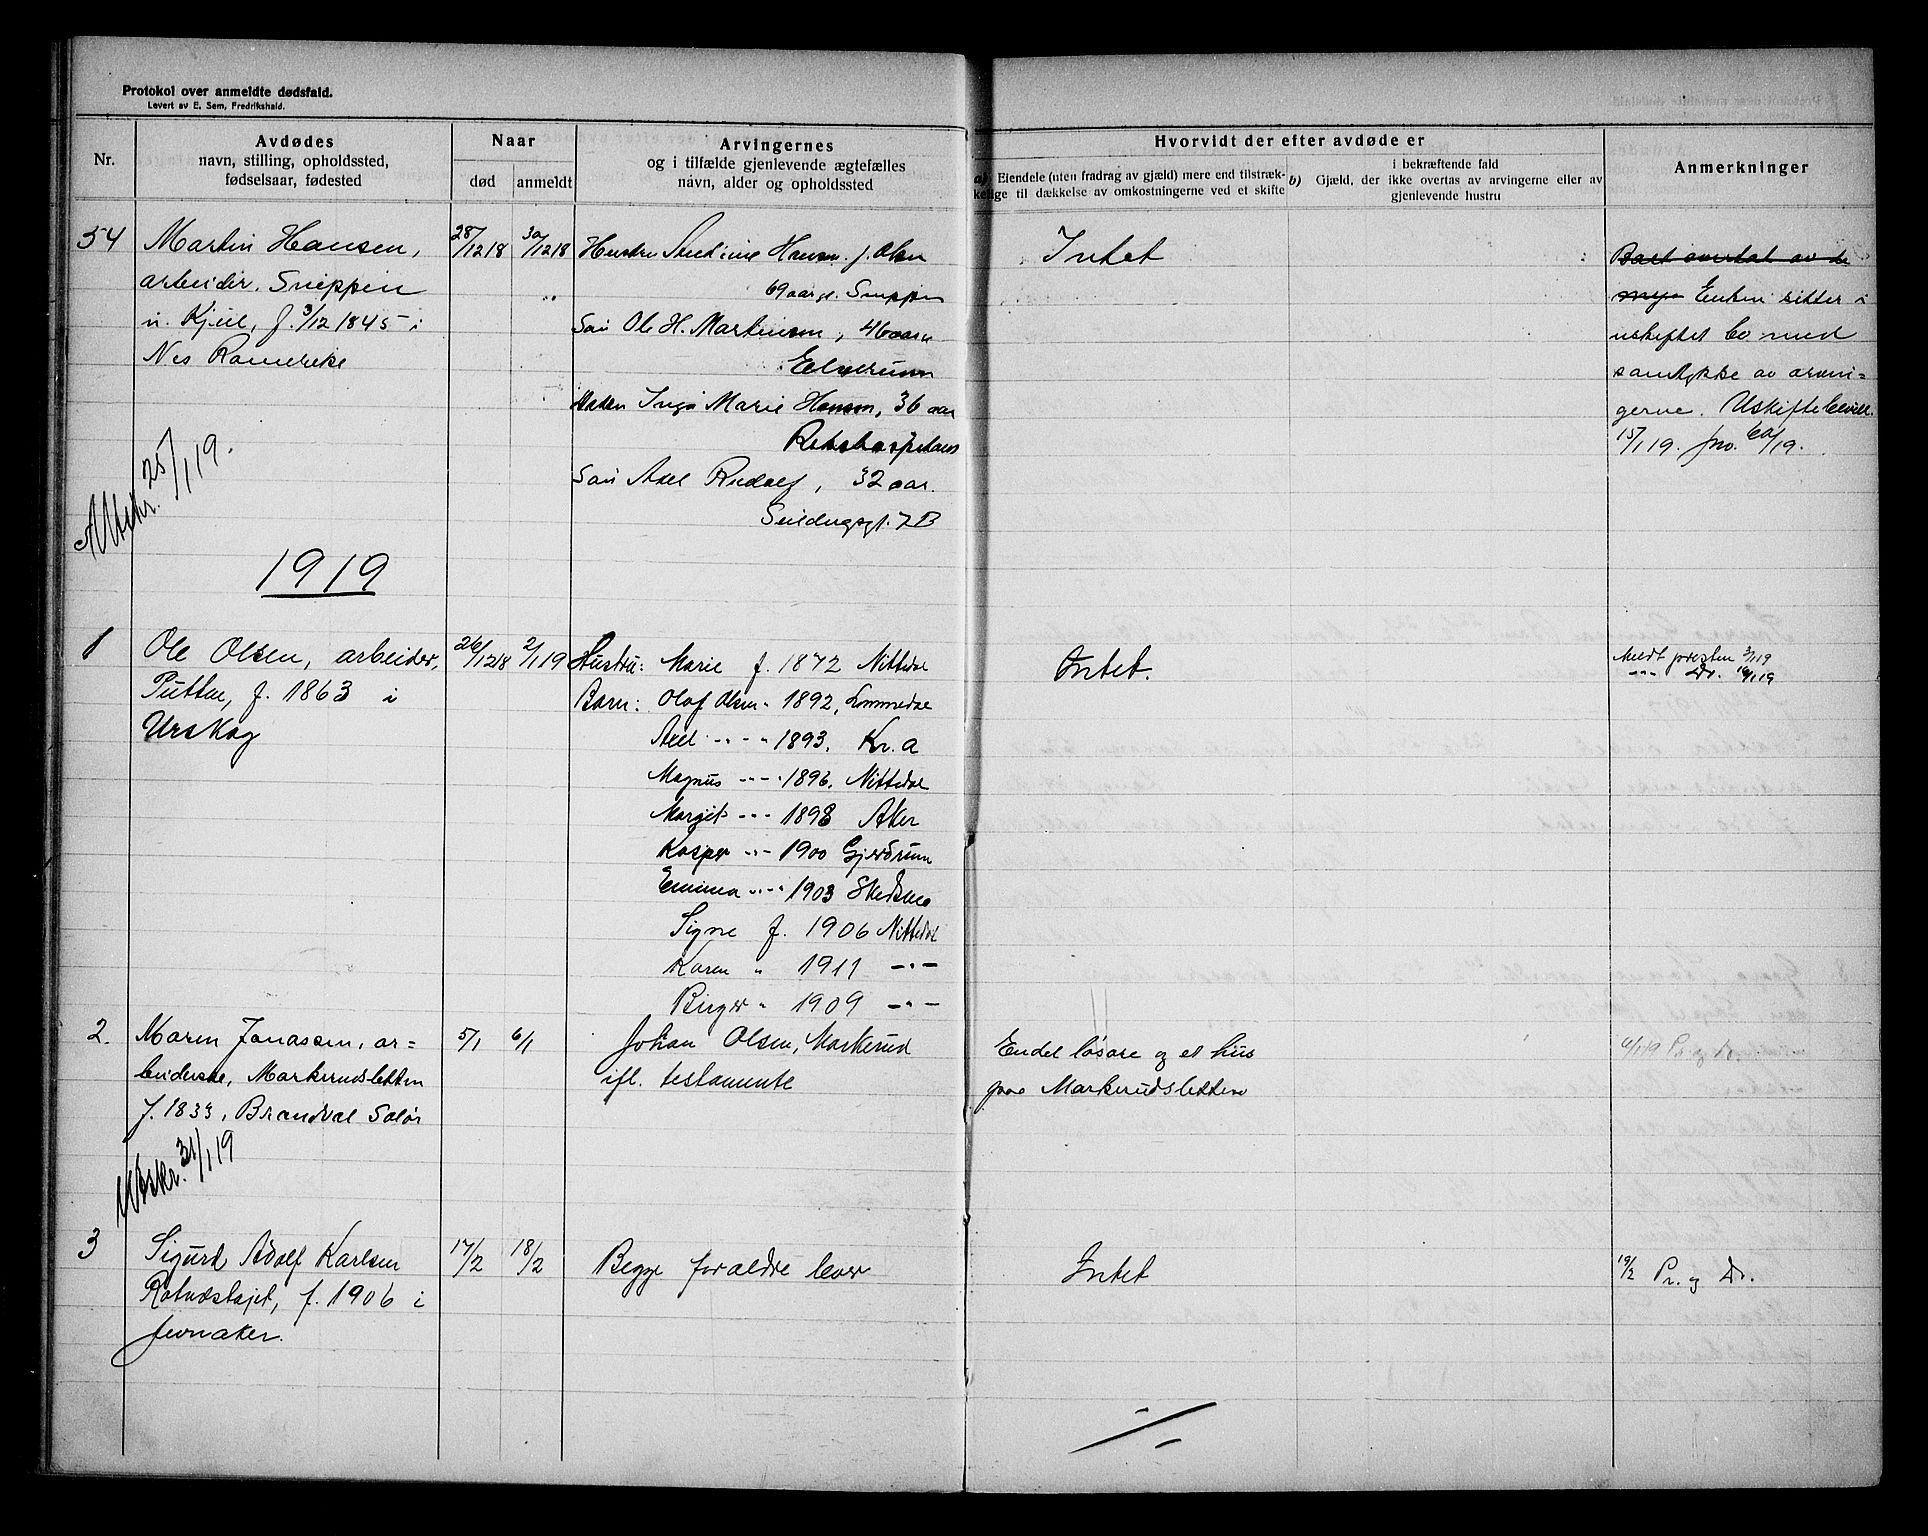 Protokol over anmeldte dødsfald.
Levert av E. Sem, Fredrikshald.
Nr.
Avdødes
navn, stilling, opholdssted,
fødselsaar, fødested
Naar
død
anmeldt
Arvingernes
og i tilfælde gjenlevende ægtefælles
navn, alder og opholdssted
Hvorvidt der efter avdøde er
a) Eiendele (uten fradrag av gjæld) mere end tilstræk-
kelige til dækkelse av omkostningerne ved et skifte
i bekræftende fald
b) Gjæld, der ikke overtas av arvingerne eller av
gjenlevende hustru
Anmerkninger
54
Martin Hansen,
arbeider, Snippen
u. Kjul, f. 3/12 1845 i
Nes Romerike
28/1218
30/1218
Hustru Hansen f. Olsen
69 aar gl. Snippen
Søn Ole H. Martinsen, 46 aar
Elverum
Datter Inga Marie Hansen, 36 aar
Rikshospitalet
Søn Axel Rudolf, 32 aar.
7B
Intet
Boet overtat av de
Enken sitter i
uskiftet bo med
samtykke av arvin-
gerne. Uskiftebevill.
15/1 19.
Utskr. 25/1 19.
1919
1
Ole Olsen, arbeider,
Putten, f. 1863 i
Urskog
26/1218
2/119
Hustru: Marie f. 1872 Nittedal
Barn: Olaf Olsen " 1892, Lommedal
Axel -"- " 1893, Kr.a
Magnus -"- " 1896, Nittedal
Margit -"- 1898 Aker
Kasper -"- 1900 Gjerdrum
Emma -"- " 1903 Skedsmo
Signe f. 1906 Nittedal
Karen " 1911 -"-
Birger " 1909 -"-
Intet.
Meldt presten 3/119
-"- Dr. 16/119
2.
Maren Jonassen, ar-
beiderske, Markerudsletten
f. 1833, Brandval Solør
5/1
6/1
Johan Olsen, Markerud
ifl. testamente
Endel løsøre og et hus
paa Markerudsletten
6/119 Pr. og Dr.
Utskr. 31/1 19
3
Sigurd Adolf Karlsen
f. 1906 i
Jevnaker.
17/2
18/2
Begge forældre lever
Intet
19/2 Pr. og Dr.